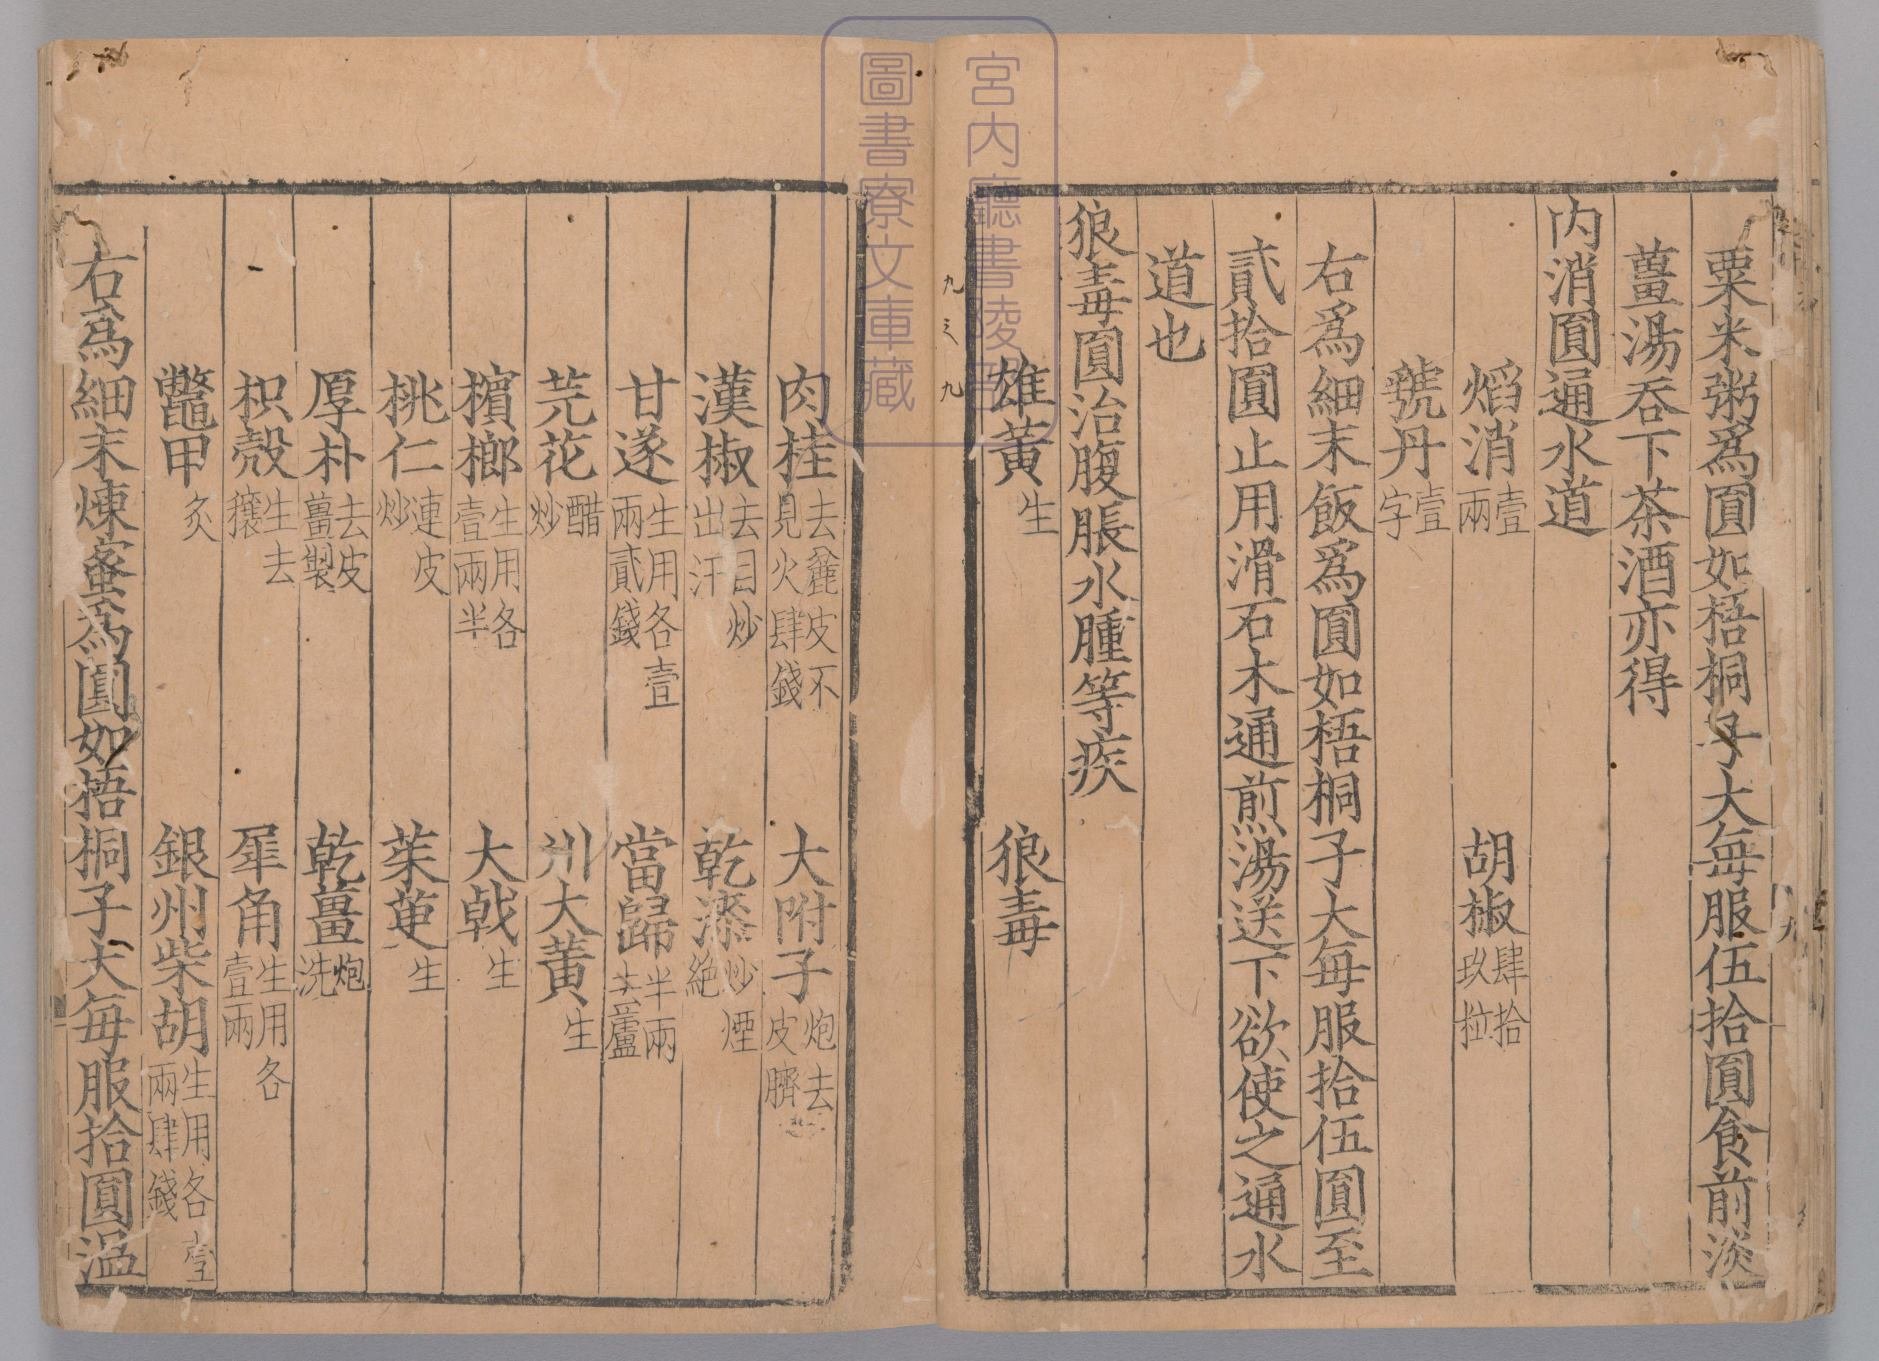 粟米粥爲圓如梧桐子大每服伍拾圓食前淡
薑湯吞下茶酒亦得
内消圓通水道
焰消壹兩 胡椒肆拾玖粒
虢丹壹字
右爲細末飯爲圓如梧桐子大每服拾伍圓至
貳拾圓止用滑石木通煎湯送下欲使之通水
道也
狼毒圓治腹脹水腫等疾
雄黃生 狼毒
肉桂去麄皮不見火肆錢 大附子炮去皮臍
漢椒去目炒出汗 乾漆炒煙絶
甘遂生用各壹兩貳錢 當歸半兩去蘆
芫花醋炒 川大黃生
檳榔生用各壹兩半 大戟生
桃仁連皮炒 茱萸生
厚朴去皮薑製 乾薑炮洗
枳殼生去穰 犀角生用各壹兩
鼈甲炙 銀州柴胡生用各壹兩肆錢
右爲細末煉蜜爲圓如梧桐子大每服拾圓温
九之九
宮内廳書陵部
圖書寮文庫藏